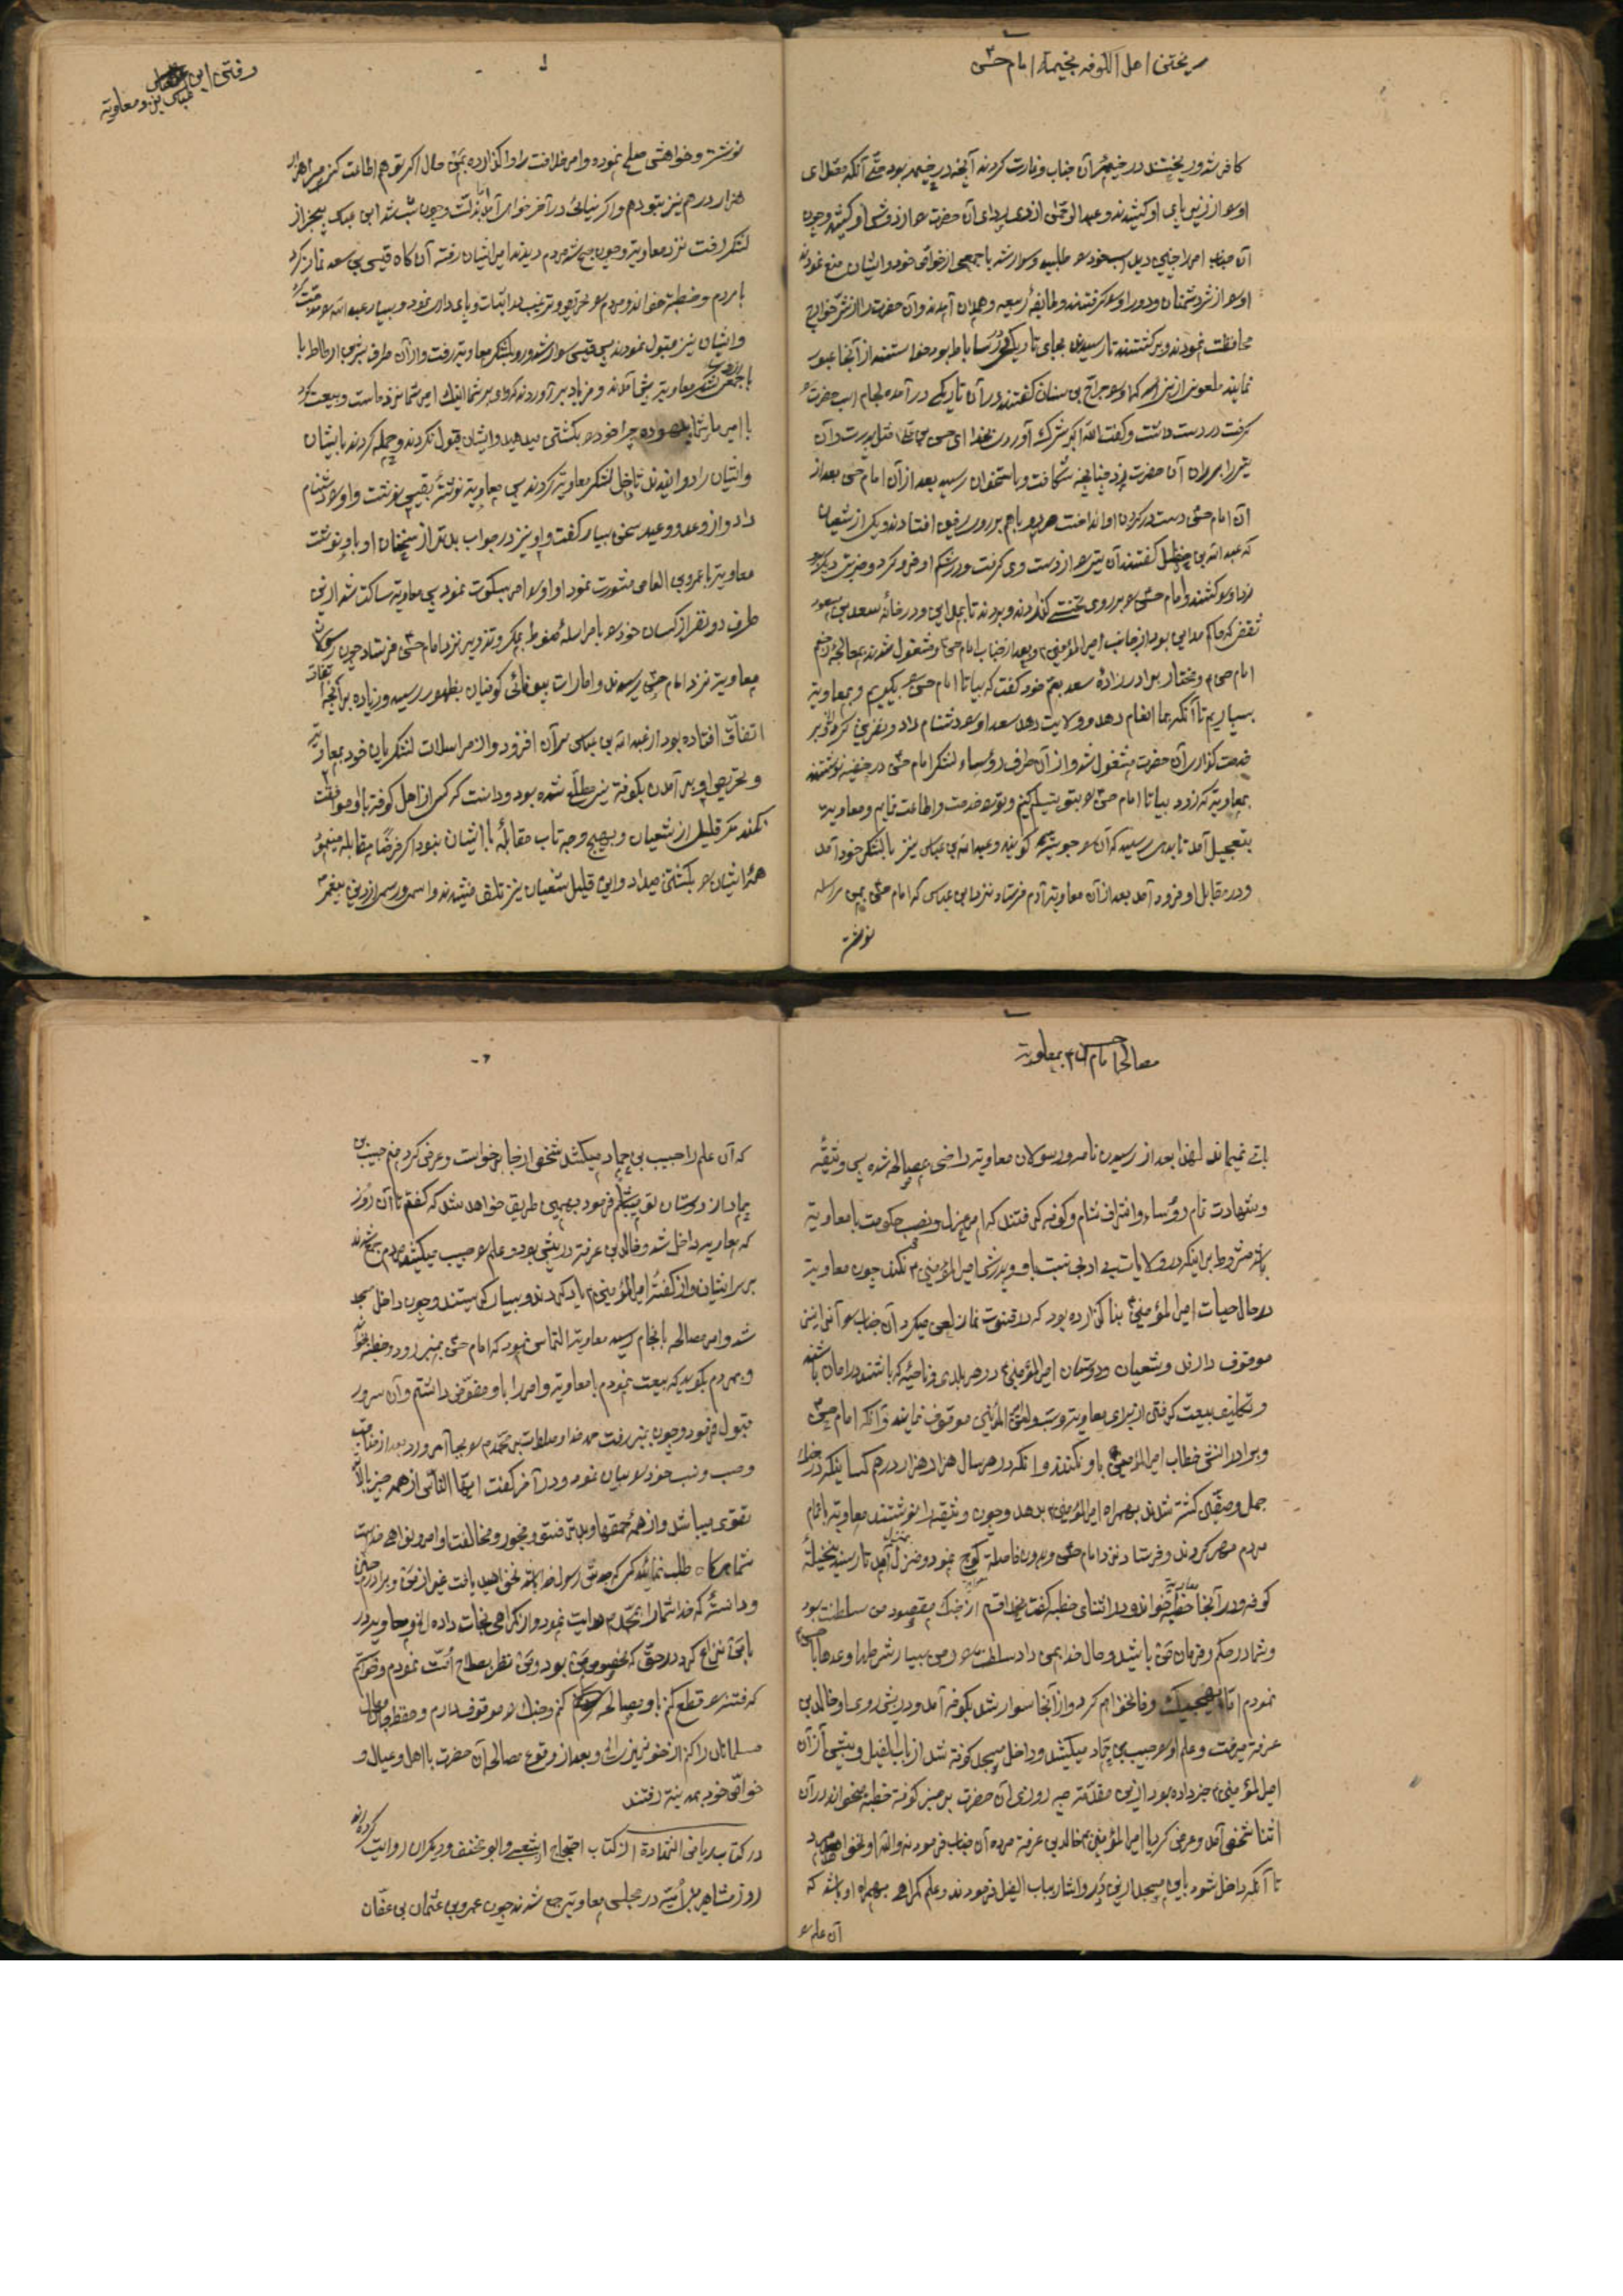 ریختن اهل الکوفه بخیمه امام حسن
کافر شد و ریختند در خیمه آن جناب و غارت کردند آنچه در خیمه بود حتی آنکه مصلای
او را از زیر پای او کشیدند و عبدالرحمن ازدی ردای آن حضرت را از دوش او کشید و چون
آن جناب امر را چنین دید اسب خود را طلبید و سوار شد با جمعی از خواص خود و ایشان منع نمودند
او را از شر دشمنان و دور او را گرفتند و طایفه ربیعه و همدان آمدند و آن حضرت را از شر خوارج
محافظت نمودند و برگشتند تا رسیدند بجای تاریکی در ساباط بود خواستند از آنجا عبور
نمایند ملعونی از بنی اسد که او را جراح بن سنان گفتند در آن تاریکی درآمده لجام اسب حضرت
گرفت در دست داشت و گفت الله اکبر شرک آوردی بخدا ای حسن
تیر را بر ران آن حضرت زد چنانچه شکافت و باستخوان رسید بعد از آن امام حسن بعد از
آن امام حسن دست در گردن او انداخت هر دو با هم بر روی زمین افتادند و یکی از شیعیان
که عبدالله بن حنظل گفتند آن تیر را از دست وی گرفت و در شکم او فرو کرد
امام حسن را بر روی تختی گذاردند و بردند تا بمداین و در خانه سعد بن مسعود
ثقفی که حاکم مداین بود از جانب امیرالمؤمنین و بعد از جناب امام حسن و مشغول شدند بمعالجه زخم
امام حسن و مختار برادرزاده سعد بعم خود گفت که بیا تا امام حسن را بگیریم و بمعاویه
بسپاریم تا آنکه بما انعام دهد و ولایت دهد سعد او را دشنام داد و نفرین کرد و
خدمت گذاری آن حضرت مشغول شد و از آن طرف رؤساء لشکر امام حسن در خفیه نوشتند
بمعاویه که زود بیا تا امام حسن را بتو تسلیم کنیم و بتو خدمت و اطاعت نمایم و معاویه
بتعجیل آمد تا بدهی رسید که آن را جوینه گویند و عبدالله بن عباس نیز با لشکر خود آمد
و در مقابل او فرود آمد بعد از آن معاویه آدم فرستاد نزد ابن عباس که امام حسن بمن مراسله
نوشته
رفتن ابن عباس نزد معاویه
نوشته و خواهش صلح نموده و امر خلافت را واگذارده بمن حال اگر تو هم اطاعت کنی هزار
هزار درهم نیز بتو دهم و اگر نیائی در آخر خواهی آمد اما بذلت و چون شب شد ابن عباس بیخبر از
لشکر رفت نزد معاویه و چون صبح شد مردم دیدند امیر ایشان رفته آن گاه قیس بن سعد نماز کرد
با مردم و خطبه خواند و مردم را تحریص و ترغیب بر اثبات و پای داری نمود و بسیار عبدالله را مذمت کرد
و ایشان نیز قبول نمودند پس قیس سوار شد و رو بلشکر معاویه رفت و از آن طرف بسر بن ارطاط با
با جمعی از لشکر معاویه پیش آمدند و فریاد برآوردند که وای بر شما اینک امیر شما نزد ماست و بیعت کرد
با امیر ما شما بیهوده چرا خود را بکشتن میدهید و ایشان قبول نکردند و حمله کردند بایشان
و ایشان را دوانیدند تا داخل لشکر معاویه کردند پس معاویه نوشته بقیس نوشت و او را دشنام
داد و از وعد و وعید سخن بسیار گفت و او نیز در جواب بدتر از سخنان او باو نوشت
معاویه با عمرو بن العاص مشورت نمود او او را امر بسکوت نمود پس معاویه ساکت شد از این
طرف دو نفر از کسان خود را با مراسله مضبوط بمکر و تزویر نزد امام حسن فرستاد چون رسولان
معاویه نزد امام حسن رسیدند و امارات بیوفائی کوفیان بظهور رسید و زیاده بر آنچه
اتفاق افتاده بود از عبدالله بن عباس بر آن افزود و از مراسلات لشکریان خود بمعاویه
و تحریص او بر آمدن بکوفه نیز مطلع شده بود و دانست که کسی از اهل کوفه با او موافقت
نکند مگر قلیل از شیعیان و بهیچ وجه تاب مقابله با ایشان نبود اگر فرضا مقابله مینمود
همه ایشان را بکشتن میداد و این قلیل شیعیان نیز تلف میشدند و اسم و رسم از دین پیغمبر
مصالحه امام حسن بمعاویه
باقی نمیماند لهذا بعد از رسیدن نامه و رسولان معاویه راضی بمصالحه شده پس وثیقه
و شهادت تمام رؤساء و اشراف شام و کوفه گرفتند که امر عزل و نصب حکومت با معاویه
باشد مشروط بر اینکه در ولایات بی ادبی نسبت باو و پدرش امیرالمؤمنین نکند چون معاویه
در حال حیات امیرالمؤمنین بنا گذارده بود که در قنوت نماز لعن میکرد آن جناب را آن نیز
موقوف دارند و شیعیان و دوستان امیرالمؤمنین در هر بلدی و ناحیه که باشند در امان باشند
و تکلیف بیعت گرفتن از برای معاویه و سب و لعن امیرالمؤمنین موقوف نمایند و آنکه امام حسن
و برادرانش خطاب امیرالمؤمنین باو نکنند و آنکه در هر سال هزار هزار درهم کسانیکه در جنگ
جمل و صفین کشته شدند بهمراه امیرالمؤمنین بدهد و چون وثیقه را نوشتند معاویه با تمام
مردم مهر کردند و فرستادند نزد امام حسن و بدون فاصله کوچ نمود و منزل بمنزل آمد تا رسید بنخیله
کوفه و در آنجا معاویه خطبه خواند و در اثنای خطبه گفت بخدا قسم از جنگ مقصود من سلطنت بود
و شما در حکم و فرمان من باشید و حال خدا بمن داد سلطنت را و من بسیار شرطها و عدها با حسن
نمودم اما بهیچیک وفا نخواهم کرد و از آنجا سوار شد بکوفه آمد و در پیش روی او خالد بن
عرفه میرفت و علم او را حبیب بن حماد میکشید و داخل مسجد کوفه شد از باب الفیل و پیش از آن
امیرالمؤمنین خبر داده بود از این مقدمه چه روزی آن حضرت بر منبر کوفه خطبه میخواند در آن
اثنا شخصی آمد و عرض کرد یا امیرالمؤمنین خالد بن عرفه مرده آن جناب فرمودند والله او نخواهد مرد
تا آنکه داخل شود باین مسجد از این در و اشاره بباب الفیل فرمودند و علم گمراهی بهمراه او باشد که
آن علم را
که آن علم را حبیب بن حماد میکشد شخصی از جا برخواست و عرض کرد منم حبیب بن
حماد از دوستان تو میباشم فرمود بهمین طریق خواهد شد که گفتم تا آن روز
که معاویه داخل شد و خالد بن عرفه در پیش بود و علم را حبیب میکشید مردم جمع شدند
بر سر ایشان و از گفته امیرالمؤمنین یاد کردند و بسیار گریستند و چون داخل مسجد
شد و امر مصالحه بانجام رسید معاویه التماس نمود که امام حسن بمنبر رود و خطبه بخواند
و بمردم بگوید که بیعت نمودم با معاویه و امر را باو مفوض داشتم و آن سرور
قبول فرمود و چون بمنبر رفت حمد خدا و صلوات بر محمد را بجا آورد بعد از مناقب
و حسب و نسب خود را بیان نمود و در آخر گفت ایها الناس از همه چیز بالاتر
تقوی میباشد و از همه حمقها بدتر فسق و فجور و مخالفت اوامر و نواهی خداست
شما هرگاه طلب نمائید کسی که جدش رسول خدا باشد نخواهید یافت غیر از من و برادرم حسین
و دانسته که خدا شما را بمحمد هدایت نمود و از گمراهی نجات داده الخ و معاویه در
با من نزاع کرد در حقی که مخصوص من بود و من نظر بصلاح امت نمودم و خواستم
که فتنه را قطع کنم باو مصالحه کنم و جنگ را موقوف دارم و حفظ جان و مال
مسلمانان را کنم از خونریزی الخ و بعد از وقوع مصالحه آن حضرت با اهل و عیال و
خواص خود بمدینه رفتند
در کتاب ریاض الشهادة از کتاب احتجاج از شعبی و ابو مخنف و دیگران روایت کرده اند
روز مشاهیر بنی امیه در مجلس معاویه جمع شدند چون عمرو بن عثمان بن عفان